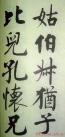 姑伯叔猶子
比兒孔懷兄